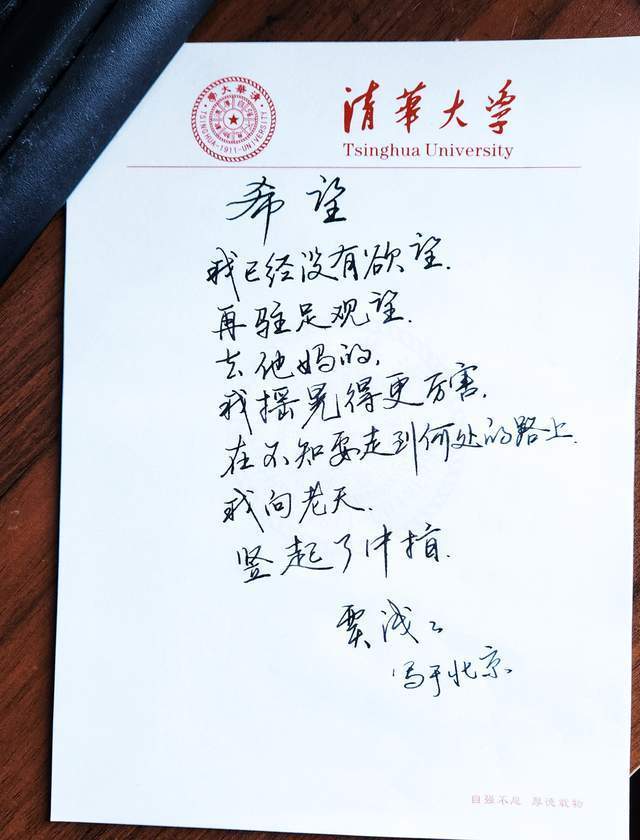 清華大學
·TSINGHUA-1911-UNIVERSITY·
清華大学
Tsinghua University
希望
我已经没有欲望.
再驻足观望.
去他妈的,
我摇晃得更厉害.
在不知要走到何处的路上.
我向老天.
竖起了中指.
贾浅浅
写于北京
自强不息 厚德载物